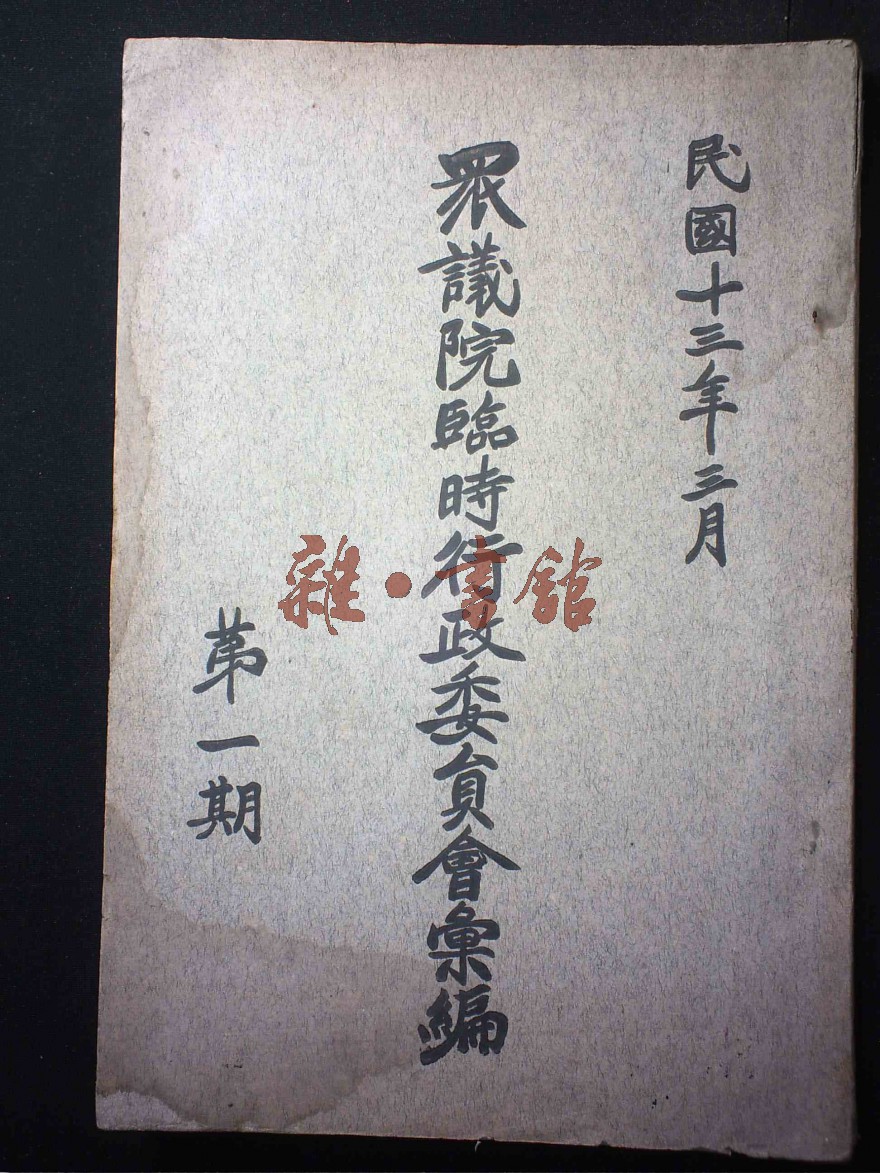 民國十三年三月
眾議院臨時行政委員會彙編
第一期
雜·書館